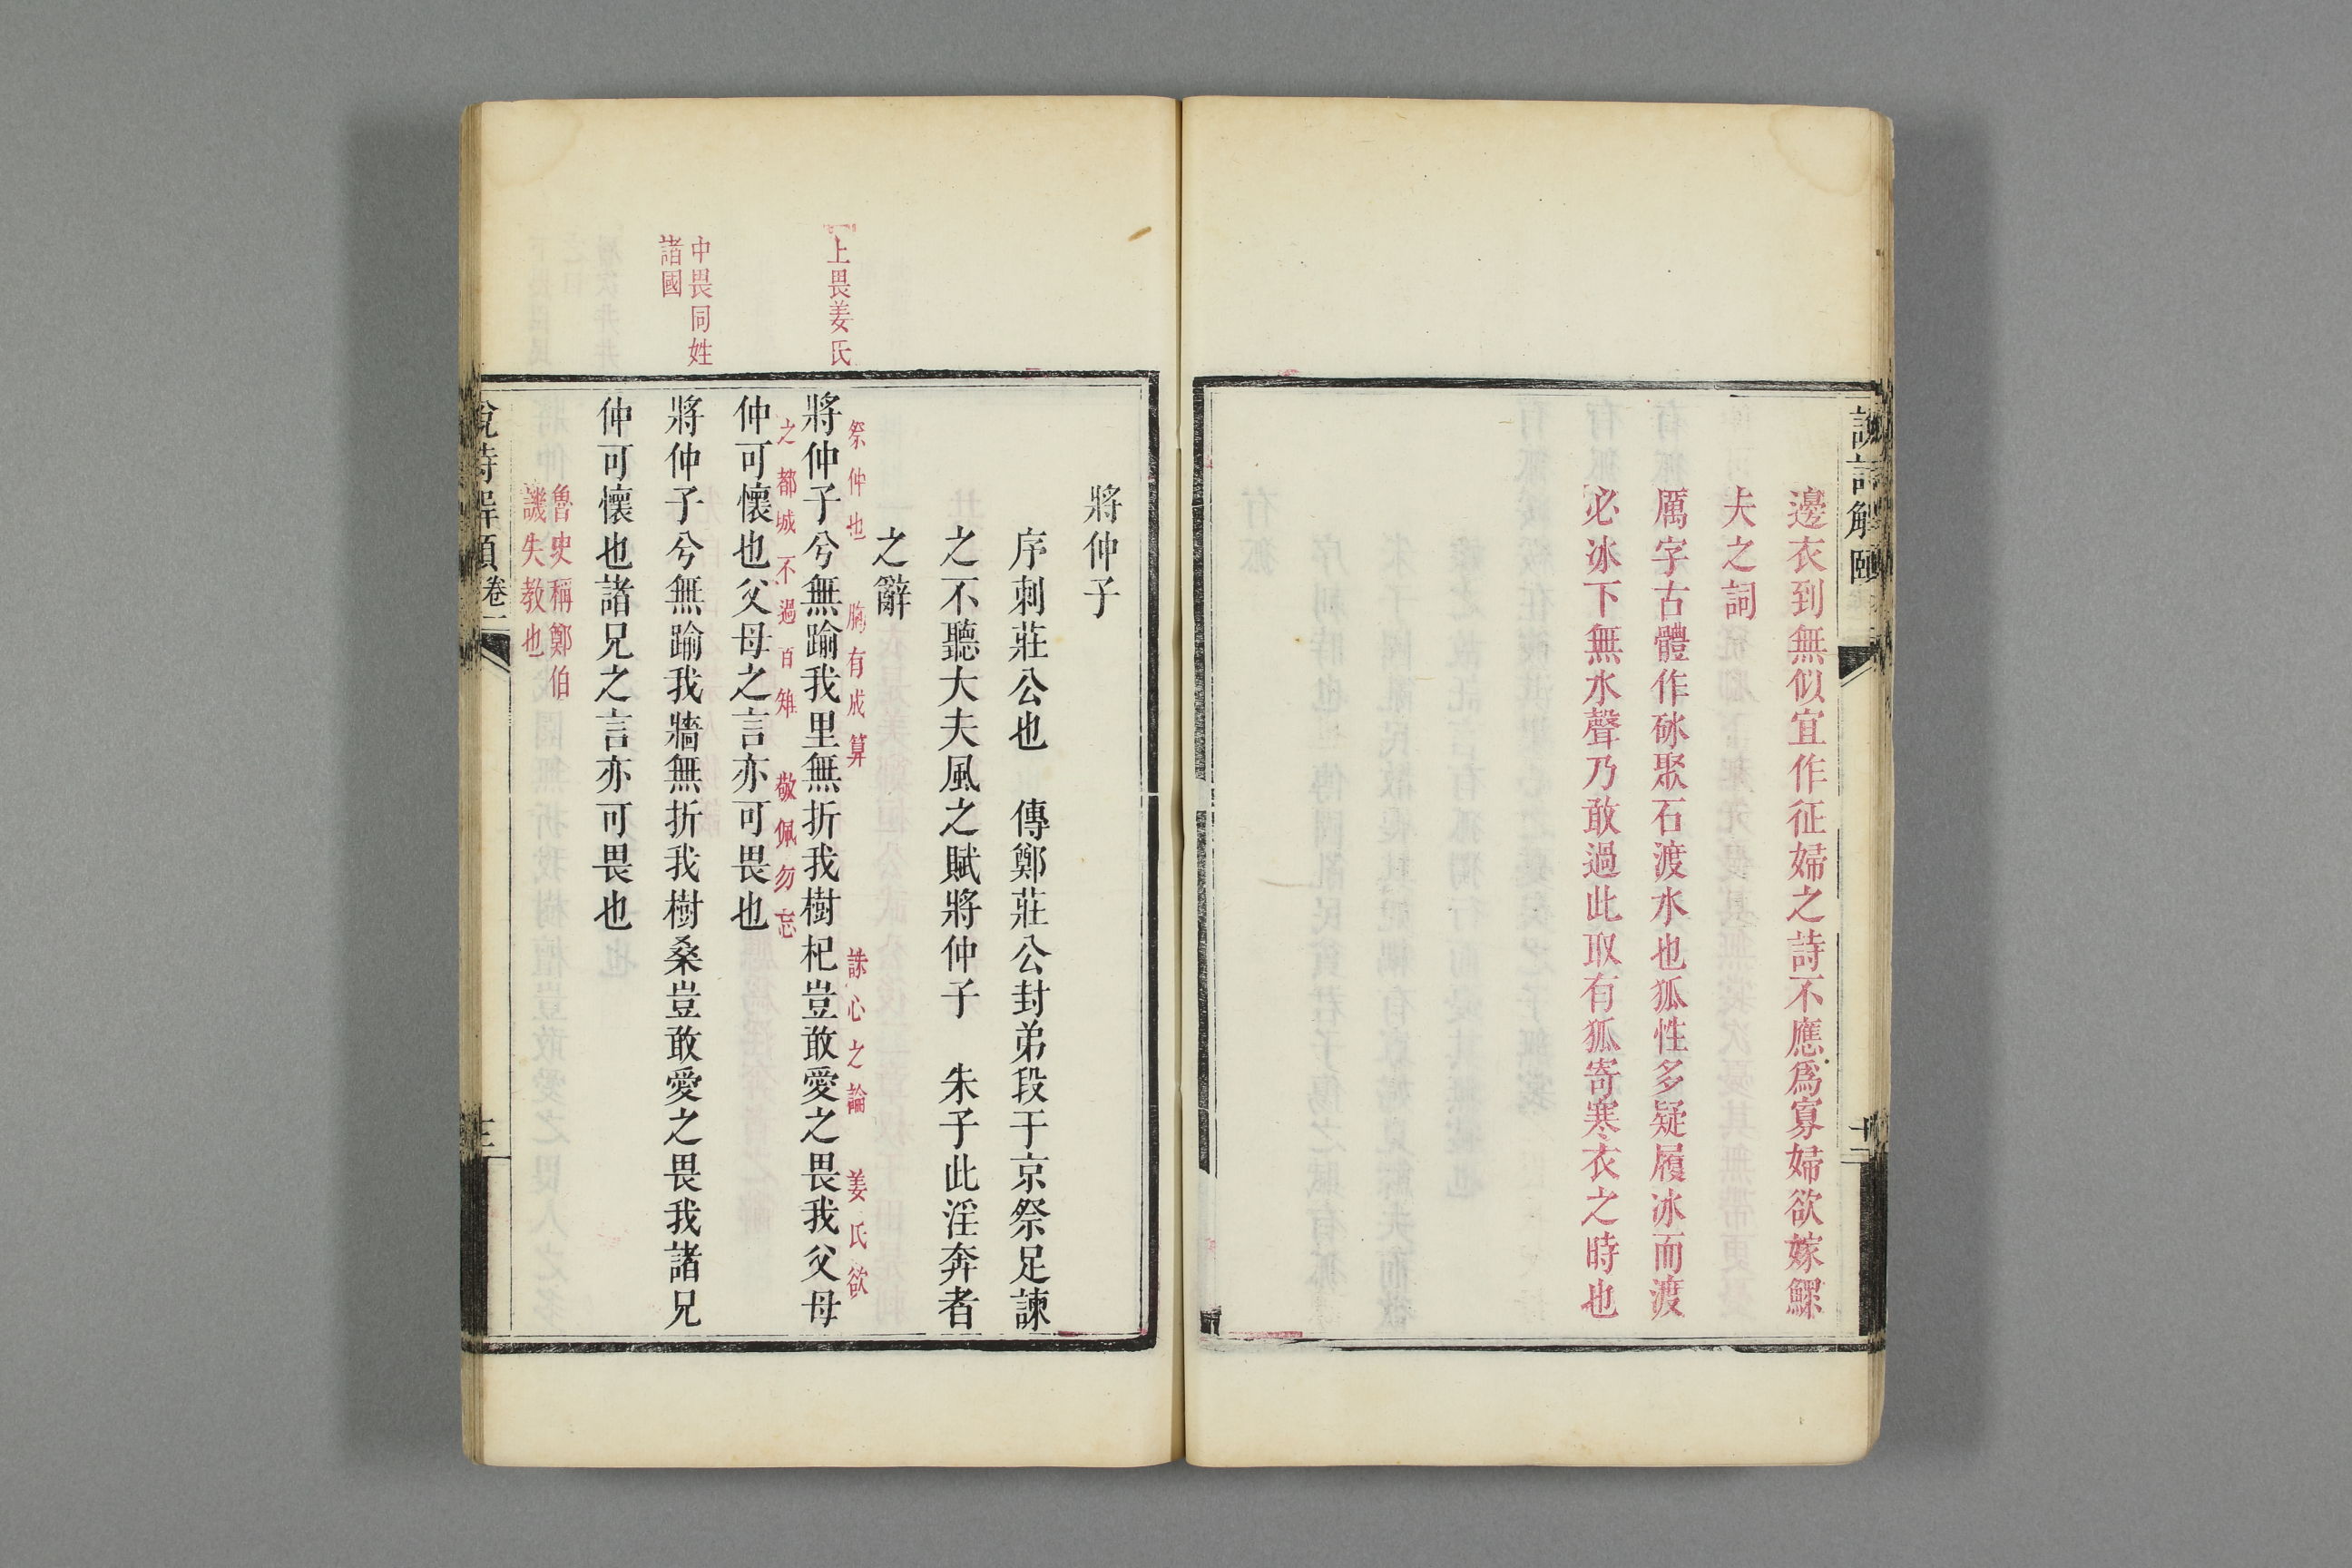 邊衣到無似宜作征婦之詩不應爲寡婦欲嫁鰥
夫之詞
厲字古體作砅聚石渡水也狐性多疑履冰而渡
必冰下無水聲乃敢過此取有狐寄寒衣之時也
將仲子
序刺莊公也　傳鄭莊公封弟段于京祭足諫
之不聽大夫風之賦將仲子　朱子此淫奔者
之辭
上畏姜氏
祭仲也　胸有成算　誅心之論　姜氏欲
將仲子兮無踰我里無折我樹杞豈敢愛之畏我父母
之都城不過百雉　敬佩勿忘
仲可懷也父母之言亦可畏也
中畏同姓
諸國
將仲子兮無踰我牆無折我樹桑豈敢愛之畏我諸兄
仲可懷也諸兄之言亦可畏也
魯史稱鄭伯
譏失教也
說詩解頤 卷一